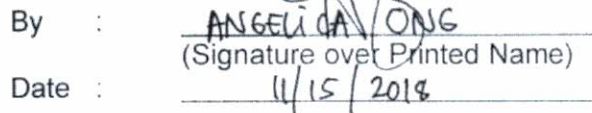 By : ANGELICA ONG
(Signature over Printed Name)
Date : 11/15/2018